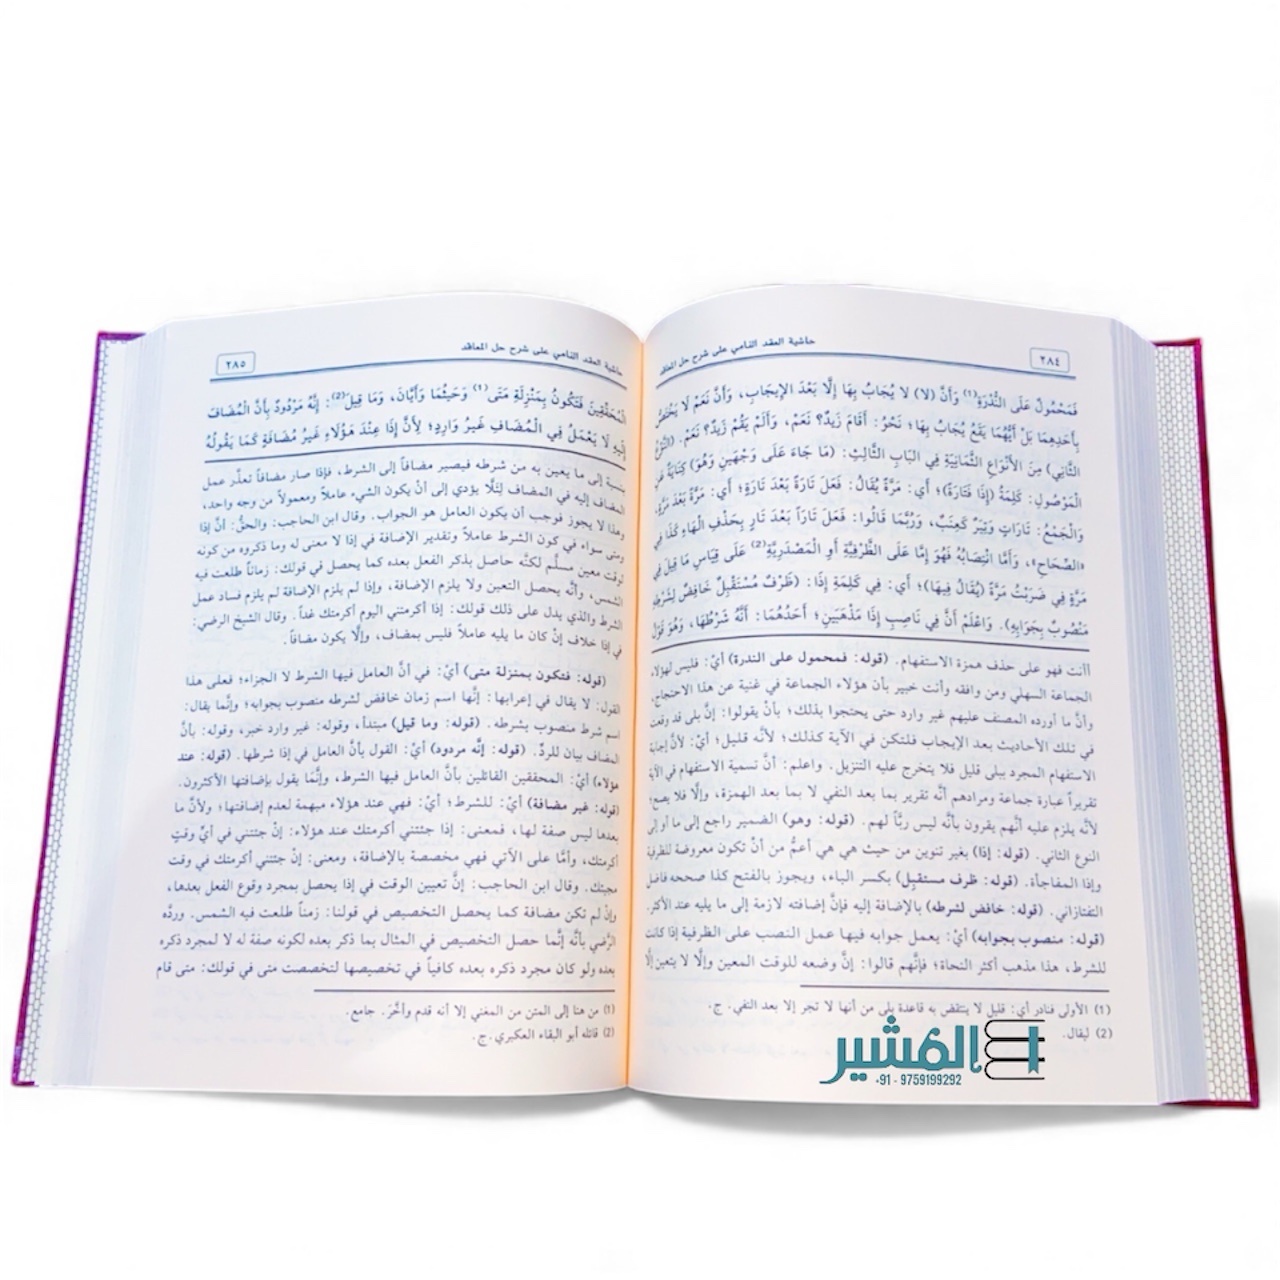 ٢٨٤
حاشية العقد النامي على شرح حل المعاقد
فَمَحْمُولٌ عَلَى النُّدْرَةِ(1) وَأَنَّ (لا) لا يُجَابُ بِهَا إِلَّا بَعْدَ الإِيجَابِ، وَأَنَّ نَعَمْ لَا يَخْتَصُّ
بِأَحَدِهِمَا بَلْ أَيُّهُمَا يَقَعُ يُجَابُ بِهَا؛ نَحْوُ: أَقَامَ زَيْدٌ؟ نَعَمْ، وَأَلَمْ يَقُمْ زَيْدٌ؟ نَعَمْ. (النَّوْعُ
الثَّانِي) مِنَ الأَنْوَاعِ الثَّمَانِيَةِ فِي البَابِ الثَّالِثِ: (مَا جَاءَ عَلَى وَجْهَيْنِ وَهُوَ) كِنَايَةٌ عَنِ
المَوْصُولِ: كَلِمَةُ (إِذَا فَتَارَةً)؛ أي: مَرَّةً يُقَالُ: فَعَلَ تَارَةً بَعْدَ تَارَةٍ؛ أي: مَرَّةً بَعْدَ مَرَّةٍ،
وَالْجَمْعُ: تَارَاتٍ وَتِيَرٌ كَعِنَبٍ، وَرُبَّمَا قَالُوا: فَعَلَ تَاراً بَعْدَ تَارٍ بِحَذْفِ الْهَاءِ كَذَا فِي
«الصِّحَاحِ»، وَأَمَّا انْتِصَابُهُ فَهُوَ إِمَّا عَلَى الظَّرْفِيَّةِ أَوِ الْمَصْدَرِيَّةِ(2) عَلَى قِيَاسِ مَا قِيلَ فِي
مَرَّةٍ فِي ضَرَبْتُ مَرَّةً (يُقَالُ فِيهَا)؛ أي: فِي كَلِمَةِ إِذَا: (ظَرْفٌ مُسْتَقْبِلٌ خَافِضٌ لِشَرْطِهِ
مَنْصُوبٌ بِجَوَابِهِ). وَاعْلَمْ أَنَّ فِي نَاصِبِ إِذَا مَذْهَبَيْنِ؛ أَحَدُهُمَا: أَنَّهُ شَرْطُهَا، وَهُوَ قَوْلُ
أأنت فهو على حذف همزة الاستفهام. (قوله: فمحمول على الندرة) أيْ: فليس لهؤلاء
الجماعة السهلي ومن وافقه وأنت خبير بأن هؤلاء الجماعة في غنية عن هذا الاحتجاج،
وأنَّ ما أورده المصنف عليهم غير وارد حتى يحتجوا بذلك؛ بأنْ يقولوا: إنَّ بلى قد وقعت
في تلك الأحاديث بعد الإيجاب فلتكن في الآية كذلك؛ لأنَّه قليل؛ أيْ: لأنَّ إجابة
الاستفهام المجرد ببلى قليل فلا يتخرج عليه التنزيل. واعلم: أنَّ تسمية الاستفهام في الآية
تقريراً عبارة جماعة ومرادهم أنَّه تقرير بما بعد النفي لا بما بعد الهمزة، وإلَّا فلا يصح؛
لأنَّه يلزم عليه أنَّهم يقرون بأنَّه ليس ربَّاً لهم. (قوله: وهو) الضمير راجع إلى ما أو إلى
النوع الثاني. (قوله: إذا) بغير تنوين من حيث هي هي أعمُّ من أنْ تكون معروضة للظرفية
وإذا المفاجأة. (قوله: ظرف مستقبِل) بكسر الباء، ويجوز بالفتح كذا صححه فاضل
التفتازاني. (قوله: خافض لشرطه) بالإضافة إليه فإنَّ إضافته لازمة إلى ما يليه عند الأكثر.
(قوله: منصوب بجوابه) أيْ: يعمل جوابه فيها عمل النصب على الظرفية إذا كانت
للشرط، هذا مذهب أكثر النحاة؛ فإنَّهم قالوا: إنَّ وضعه للوقت المعين وإلَّا لا يتعين إلَّا
(1) الأولى فنادر أي: قليل لا ينتقض به قاعدة بلى من أنها لا تجر إلا بعد النفي. ج.
(2) ليقال.
المشير
+91 - 9759199292
٢٨٥
حاشية العقد النامي على شرح حل المعاقد
الْمُحَقِّقِينَ فَتَكُونُ بِمَنْزِلَةِ مَتَى(1) وَحَيْثُمَا وَأَيَّانَ، وَمَا قِيلَ(2): إِنَّهُ مَرْدُودٌ بِأَنَّ الْمُضَافَ
إِلَيْهِ لَا يَعْمَلُ فِي الْمُضَافِ غَيْرُ وَارِدٍ؛ لِأَنَّ إِذَا عِنْدَ هَؤُلَاءِ غَيْرُ مُضَافَةٍ كَمَا يَقُولُهُ
بنسبة إلى ما يعين به من شرطه فيصير مضافاً إلى الشرط، فإذا صار مضافاً تعذَّر عمل
المضاف إليه في المضاف لئلَّا يؤدي إلى أنْ يكون الشيء عاملاً ومعمولاً من وجه واحد،
وهذا لا يجوز فوجب أن يكون العامل هو الجواب. وقال ابن الحاجب: والحقُّ: أنَّ إذا
ومتى سواء في كون الشرط عاملاً وتقدير الإضافة في إذا لا معنى له وما ذكروه من كونه
لوقت معين مسلَّم لكنَّه حاصل بذكر الفعل بعده كما يحصل في قولك: زماناً طلعت فيه
الشمس، وأنَّه يحصل التعين ولا يلزم الإضافة، وإذا لم يلزم الإضافة لم يلزم فساد عمل
الشرط والذي يدل على ذلك قولك: إذا أكرمتني اليوم أكرمتك غداً. وقال الشيخ الرضي:
في إذا خلاف إنْ كان ما يليه عاملاً فليس بمضاف، وإلَّا يكون مضافاً.
(قوله: فتكون بمنزلة متى) أيْ: في أنَّ العامل فيها الشرط لا الجزاء؛ فعلى هذا
القول: لا يقال في إعرابها: إنَّها اسم زمان خافض لشرطه منصوب بجوابه؛ وإنَّما يقال:
اسم شرط منصوب بشرطه. (قوله: وما قيل) مبتدأ، وقوله: غير وارد خبر، وقوله: بأنَّ
المضاف بيان للردِّ. (قوله: إنَّه مردود) أيْ: القول بأنَّ العامل في إذا شرطها. (قوله: عند
هؤلاء) أيْ: المحققين القائلين بأنَّ العامل فيها الشرط، وإنَّمَا يقول بإضافتها الأكثرون.
(قوله: غير مضافة) أيْ: للشرط؛ أيْ: فهي عند هؤلاء مبهمة لعدم إضافتها؛ ولأنَّ ما
بعدها ليس صفة لها، فمعنى: إذا جئتني أكرمتك عند هؤلاء: إنْ جئتني في أيِّ وقتٍ
أكرمتك، وأمَّا على الآتي فهي مخصصة بالإضافة، ومعنى: إنْ جئتني أكرمتك في وقت
مجيئك. وقال ابن الحاجب: إنَّ تعيين الوقت في إذا يحصل بمجرد وقوع الفعل بعدها،
وإنْ لم تكن مضافة كما يحصل التخصيص في قولنا: زمناً طلعت فيه الشمس. وردَّه
الرَّضي بأنَّه إنَّما حصل التخصيص في المثال بما ذكر بعده لكونه صفة له لا لمجرد ذكره
بعده ولو كان مجرد ذكره بعده كافياً في تخصيصها لتخصصت متى في قولك: متى قام
(1) من هنا إلى المتن من المغني إلا أنه قدم وأخَّر. جامع.
(2) قائله أبو البقاء العكبري. ج.